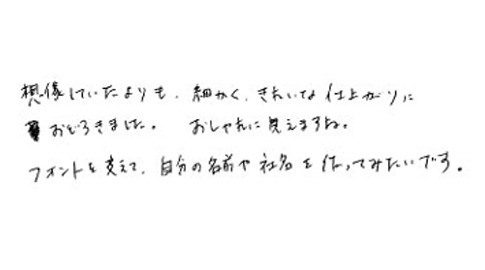 想像していたよりも、細かく、きれいな仕上がりに
おどろきました。 おしゃれに見えますね。
フォントを変えて、自分の名前や社名を作ってみたいです。